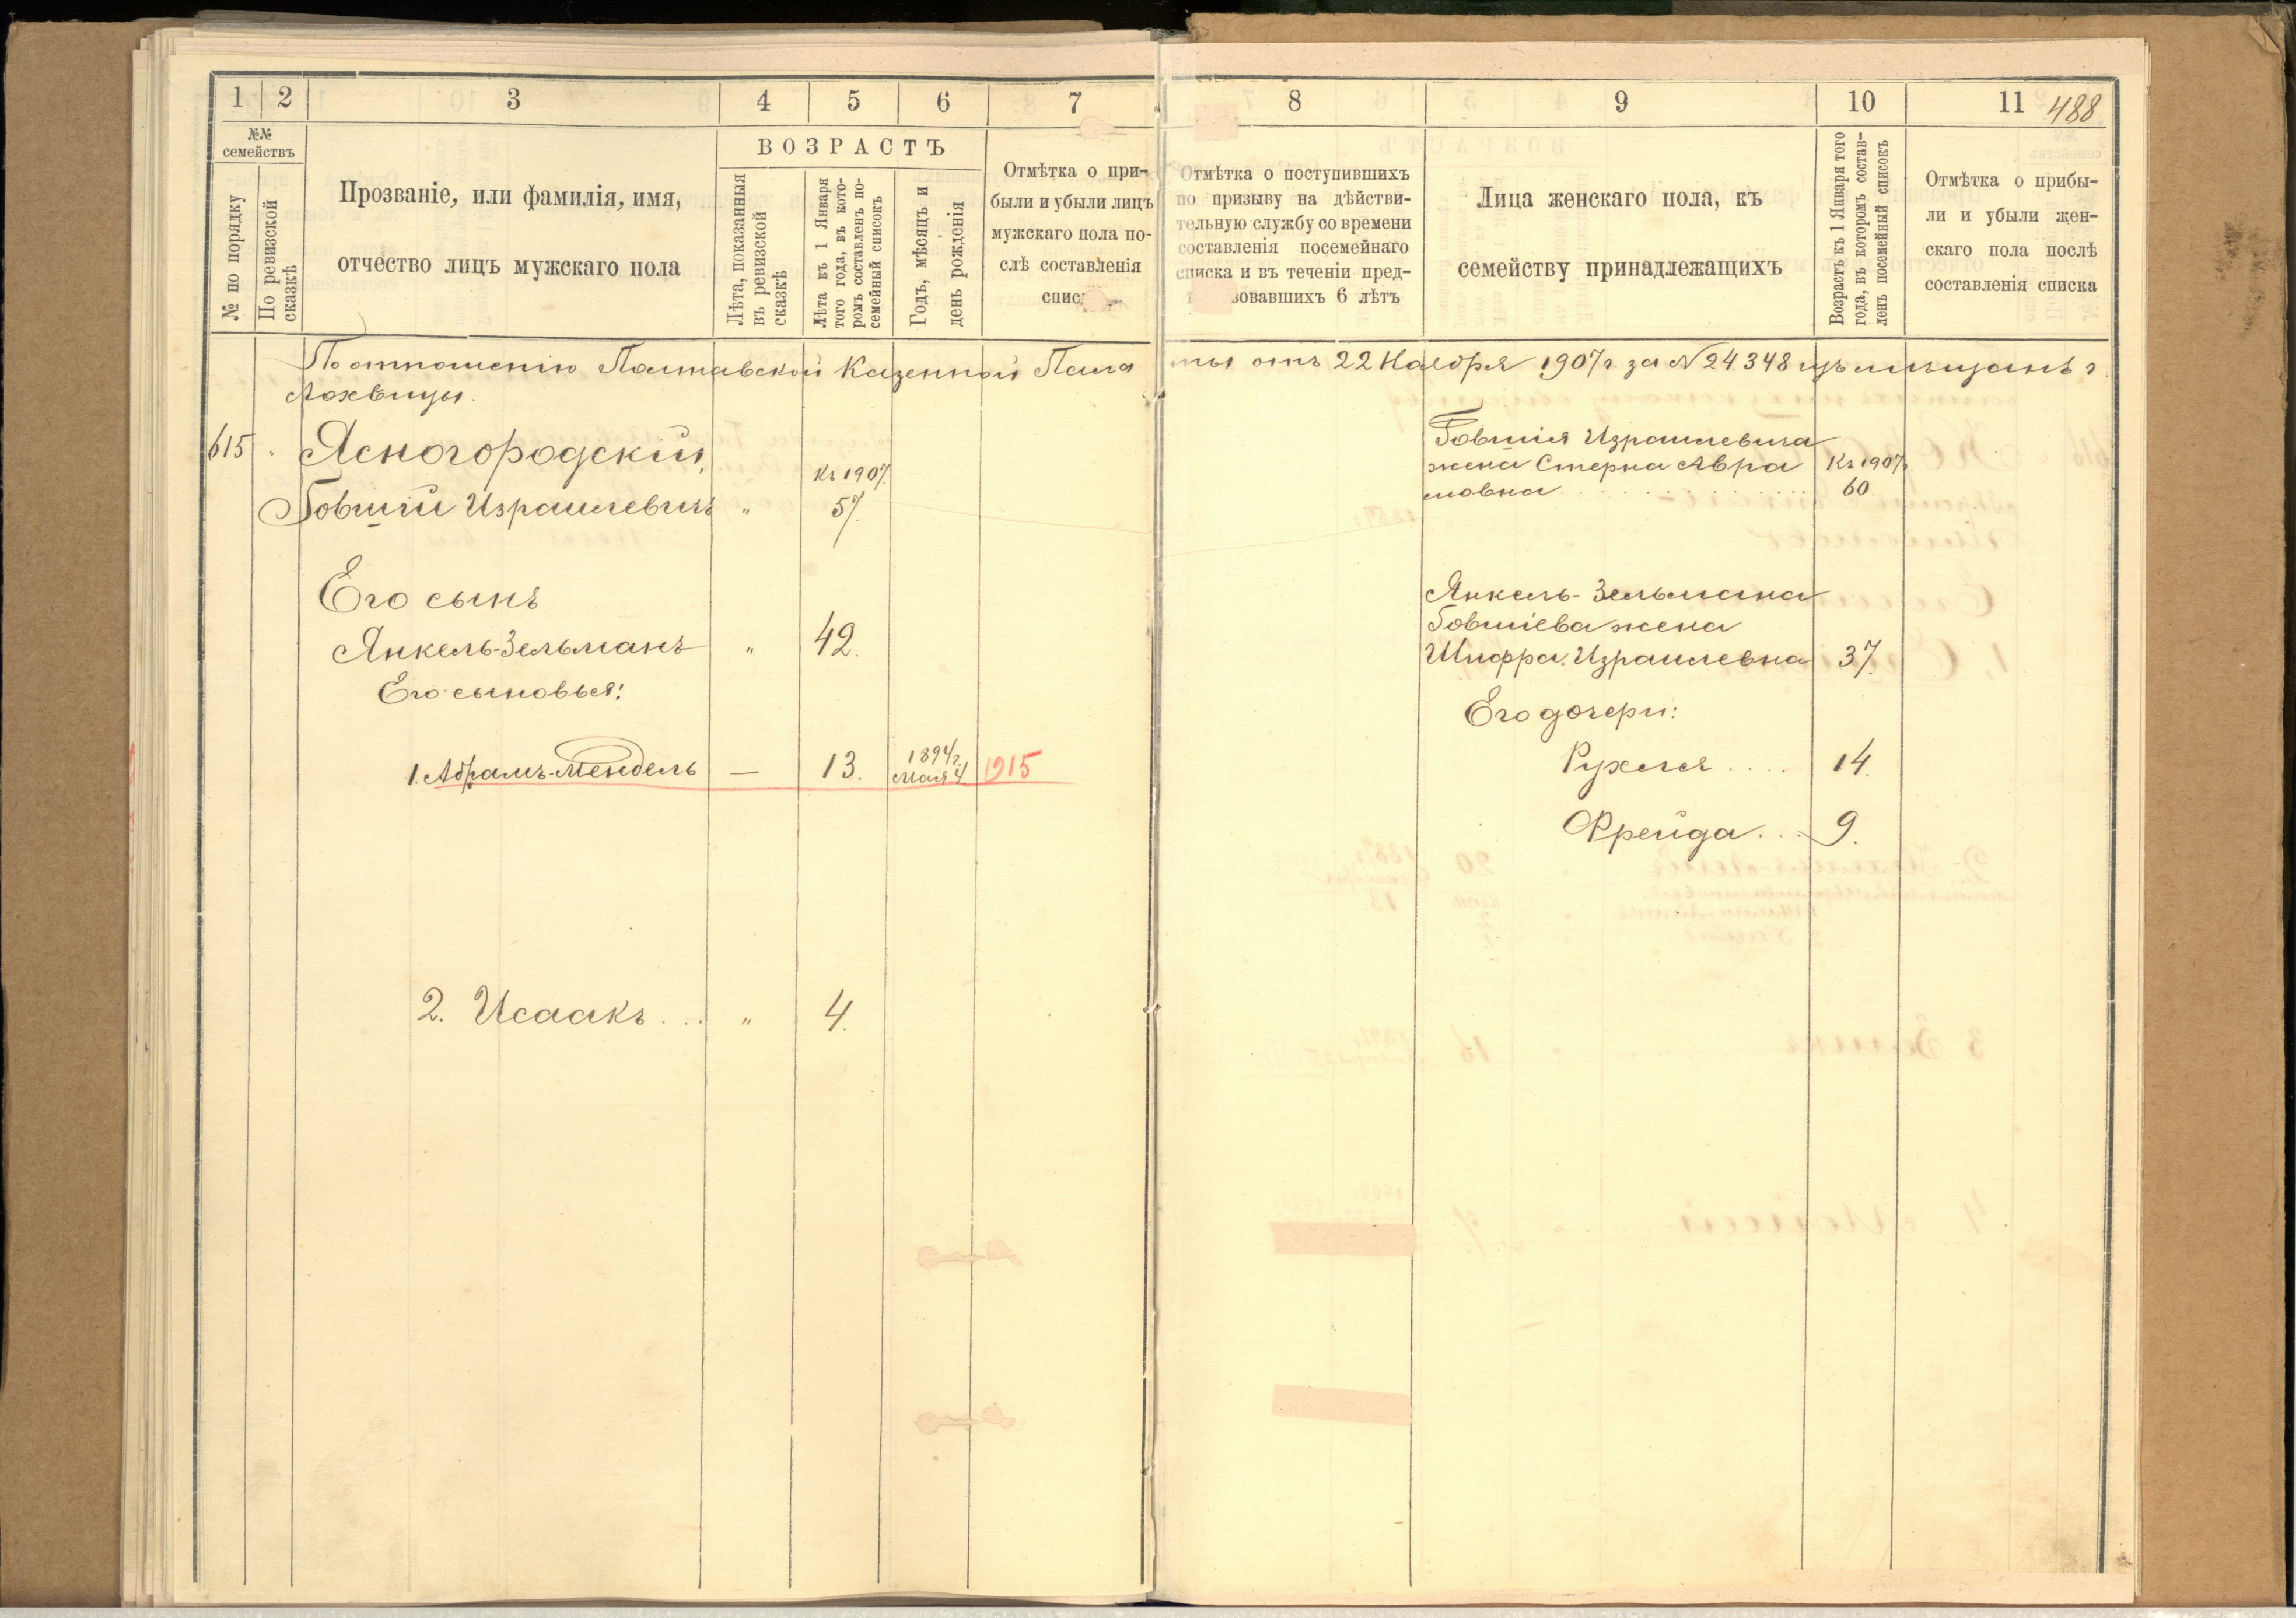 1 2 3 4 5 6 7 8 9 10 11 488
№№
семействъ
№ по порядку
По ревизской
сказкѣ
Прозваніе, или фамилія, имя,
отчество лицъ мужскаго пола
ВОЗРАСТЪ
Лѣта, показанныя
въ ревизской
сказкѣ
Лѣта къ 1 Января
того года, въ кото-
ромъ составленъ по-
семейный списокъ
Годъ, мѣсяцъ и
день рожденія
Отмѣтка о при-
были и убыли лицъ
мужскаго пола по-
слѣ составленія
Отмѣтка о поступившихъ
по призыву на дѣйстви-
тельную службу со времени
составленія посемейнаго
списка и въ теченіи пред-
вовавшихъ 6 лѣтъ
Лица женскаго пола, къ
семейству принадлежащихъ
Возрастъ къ 1 Января того
года, въ которомъ состав-
ленъ посемейный списокъ
Отмѣтка о прибы-
ли и убыли жен-
скаго пола послѣ
составленія списка
По отношенію Полтавской Казенной Пала
ты отъ 22 Ноября 1907 г. за N 24.348 изъ мѣщанъ г.
Лохвицы.
615 " Ясногородскій,
Къ 1907.
Говшій Израилевичъ " 57.
Его сынъ
Янкель-Зельманъ " 42.
Его сыновья:
1. Абрамъ-Мендель — 13. 1894 г. Мая 4. 1915
2. Исаакъ . . . " 4.
Говшія Израилевича
жена Стерна Авра Къ 1907г.
мовна . . . . . . 60
Янкель-Зельмана
Говшіева жена
Шифра Израилевна 37.
Его дочери:
Рухля . . . . 14.
Фрейда . . . 9.